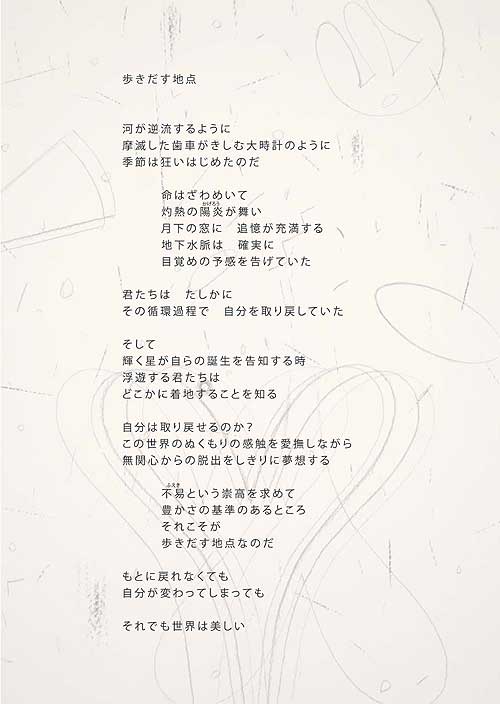 歩きだす地点
河が逆流するように
摩滅した歯車がきしむ大時計のように
季節は狂いはじめたのだ
命はざわめいて
灼熱の陽炎が舞い
月下の窓に　追憶が充満する
地下水脈は　確実に
目覚めの予感を告げていた
君たちは　たしかに
その循環過程で　自分を取り戻していた
そして
輝く星が自らの誕生を告知する時
浮遊する君たちは
どこかに着地することを知る
自分は取り戻せるのか？
この世界のぬくもりの感触を愛撫しながら
無関心からの脱出をしきりに夢想する
不易という崇高を求めて
豊かさの基準のあるところ
それこそが
歩きだす地点なのだ
もとに戻れなくても
自分が変わってしまっても
それでも世界は美しい